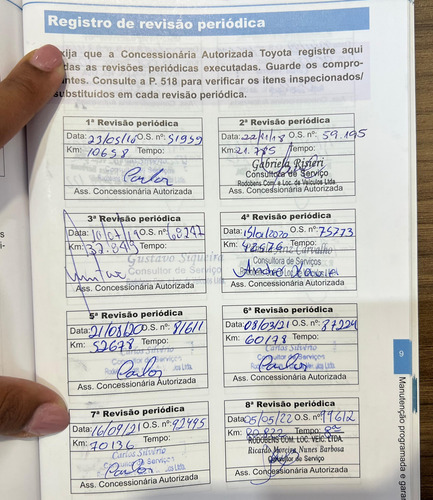 Registro de revisão periódica
xija que a Concessionária Autorizada Toyota registre aqui
das as revisões periódicas executadas. Guarde os compro-
antes. Consulte a P. 518 para verificar os itens inspecionados/
substituídos em cada revisão periódica.
1ª Revisão periódica
Data: O.S. nº: 51959
Km: 10658 Tempo:
Ass. Concessionária Autorizada
2ª Revisão periódica
Data: 22/11/18 O.S. nº: 59.195
Km: 21.785 Tempo:
Gabriela Risieri
Consultora de Serviço
Rodobens Com. e Loc. de Veículos Ltda
Ass. Concessionária Autorizada
3ª Revisão periódica
Data: O.S. nº: 68242
Km: Tempo:
Gustavo Siqueira
Consultor de Serviço
Ass. Concessionária Autorizada
4ª Revisão periódica
Data: 15/01/2020 O.S. nº: 75773
Km: 42576 Tempo:
Carvalho
Consultora de Serviços
Ass. Concessionária Autorizada
5ª Revisão periódica
Data: 21/08/20 O.S. nº: 81611
Km: 52678 Tempo:
Carlos Silvério
Ass. Concessionária Autorizada
6ª Revisão periódica
Data: 08/03/21 O.S. nº: 87224
Km: 60178 Tempo:
Carlos Silvério
Ass. Concessionária Autorizada
7ª Revisão periódica
Data: 16/09/21 O.S. nº: 92495
Km: 70136 Tempo:
Carlos Silvério
Ass. Concessionária Autorizada
8ª Revisão periódica
Data: 05/05/22 O.S. nº: 99612
Km: Tempo: 8ª
RODOBENS COM. LOC. VEIC. LTDA.
Ricardo Moreira Nunes Barbosa
Consultor de Serviço
Ass. Concessionária Autorizada
9
Manutenção programada e garan